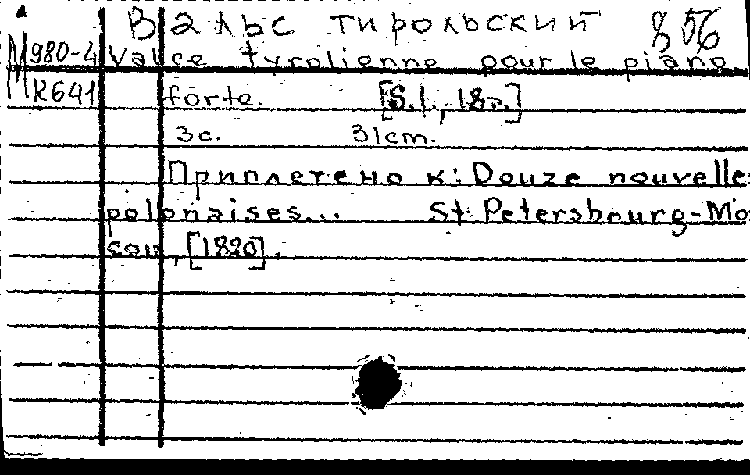 Вальс тирольский 856
М980-4 Valse tyrolienne pour le piano
R641 forte. [S.l., 18..]
3с. 31cm.
Приплетено к: Douze nouvelles
polonaises... St. Petersbourg-Mo
scou, [1820].